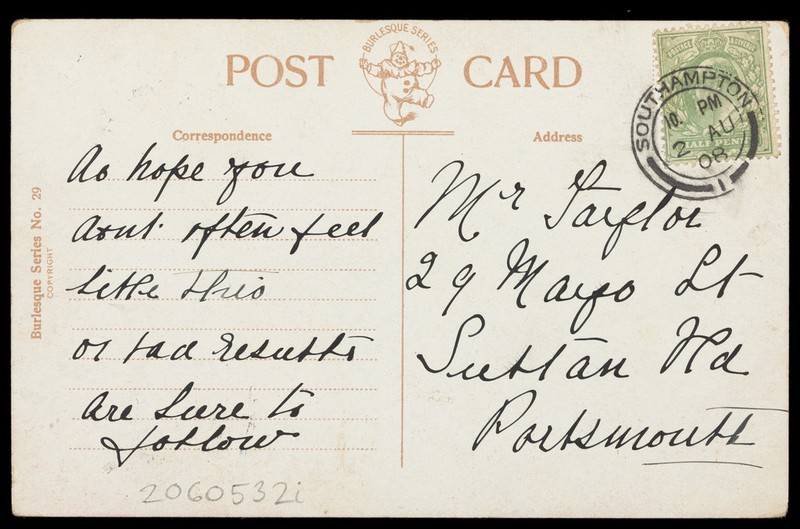 BURLESQUE SERIES
POST CARD
Correspondence
Address
Burlesque Series No. 29
COPYRIGHT
SOUTHAMPTON
10. PM
2 AU
08
1
HALF PENNY
Do hope you
dont often feel
like this
or bad results
are sure to
follow
Mr Taylor
29 Mayo St
Sultan Rd
Portsmouth
2060532i